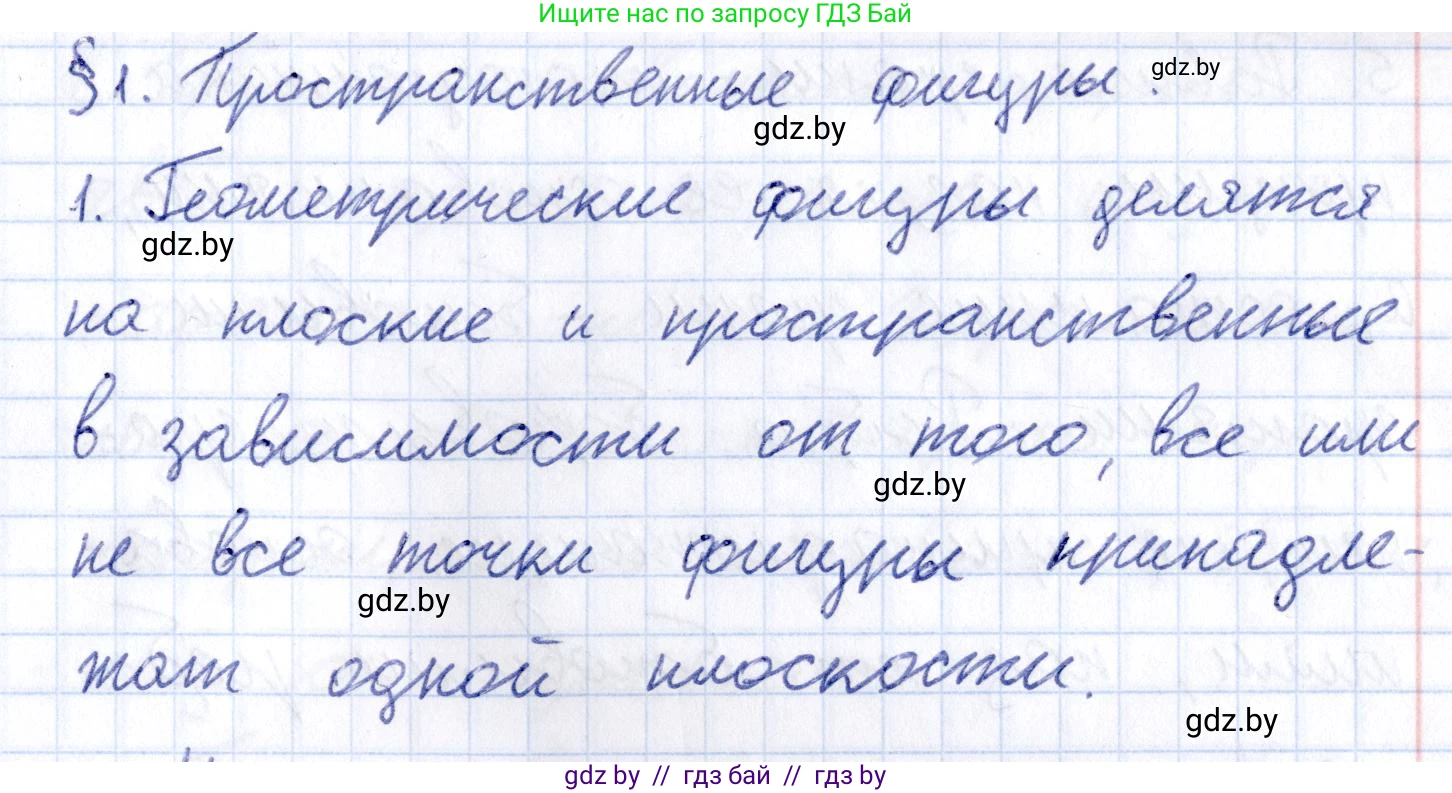 Ищите нас по запросу ГДЗ Бай
§1. Пространственные фигуры. gdz.by
gdz.by
1. Геометрические фигуры делятся
gdz.by
на плоские и пространственные
в зависимости от того, все или
gdz.by
не все точки фигуры принадле-
gdz.by
жат одной плоскости.
gdz.by
gdz by // гдз бай // гдз by